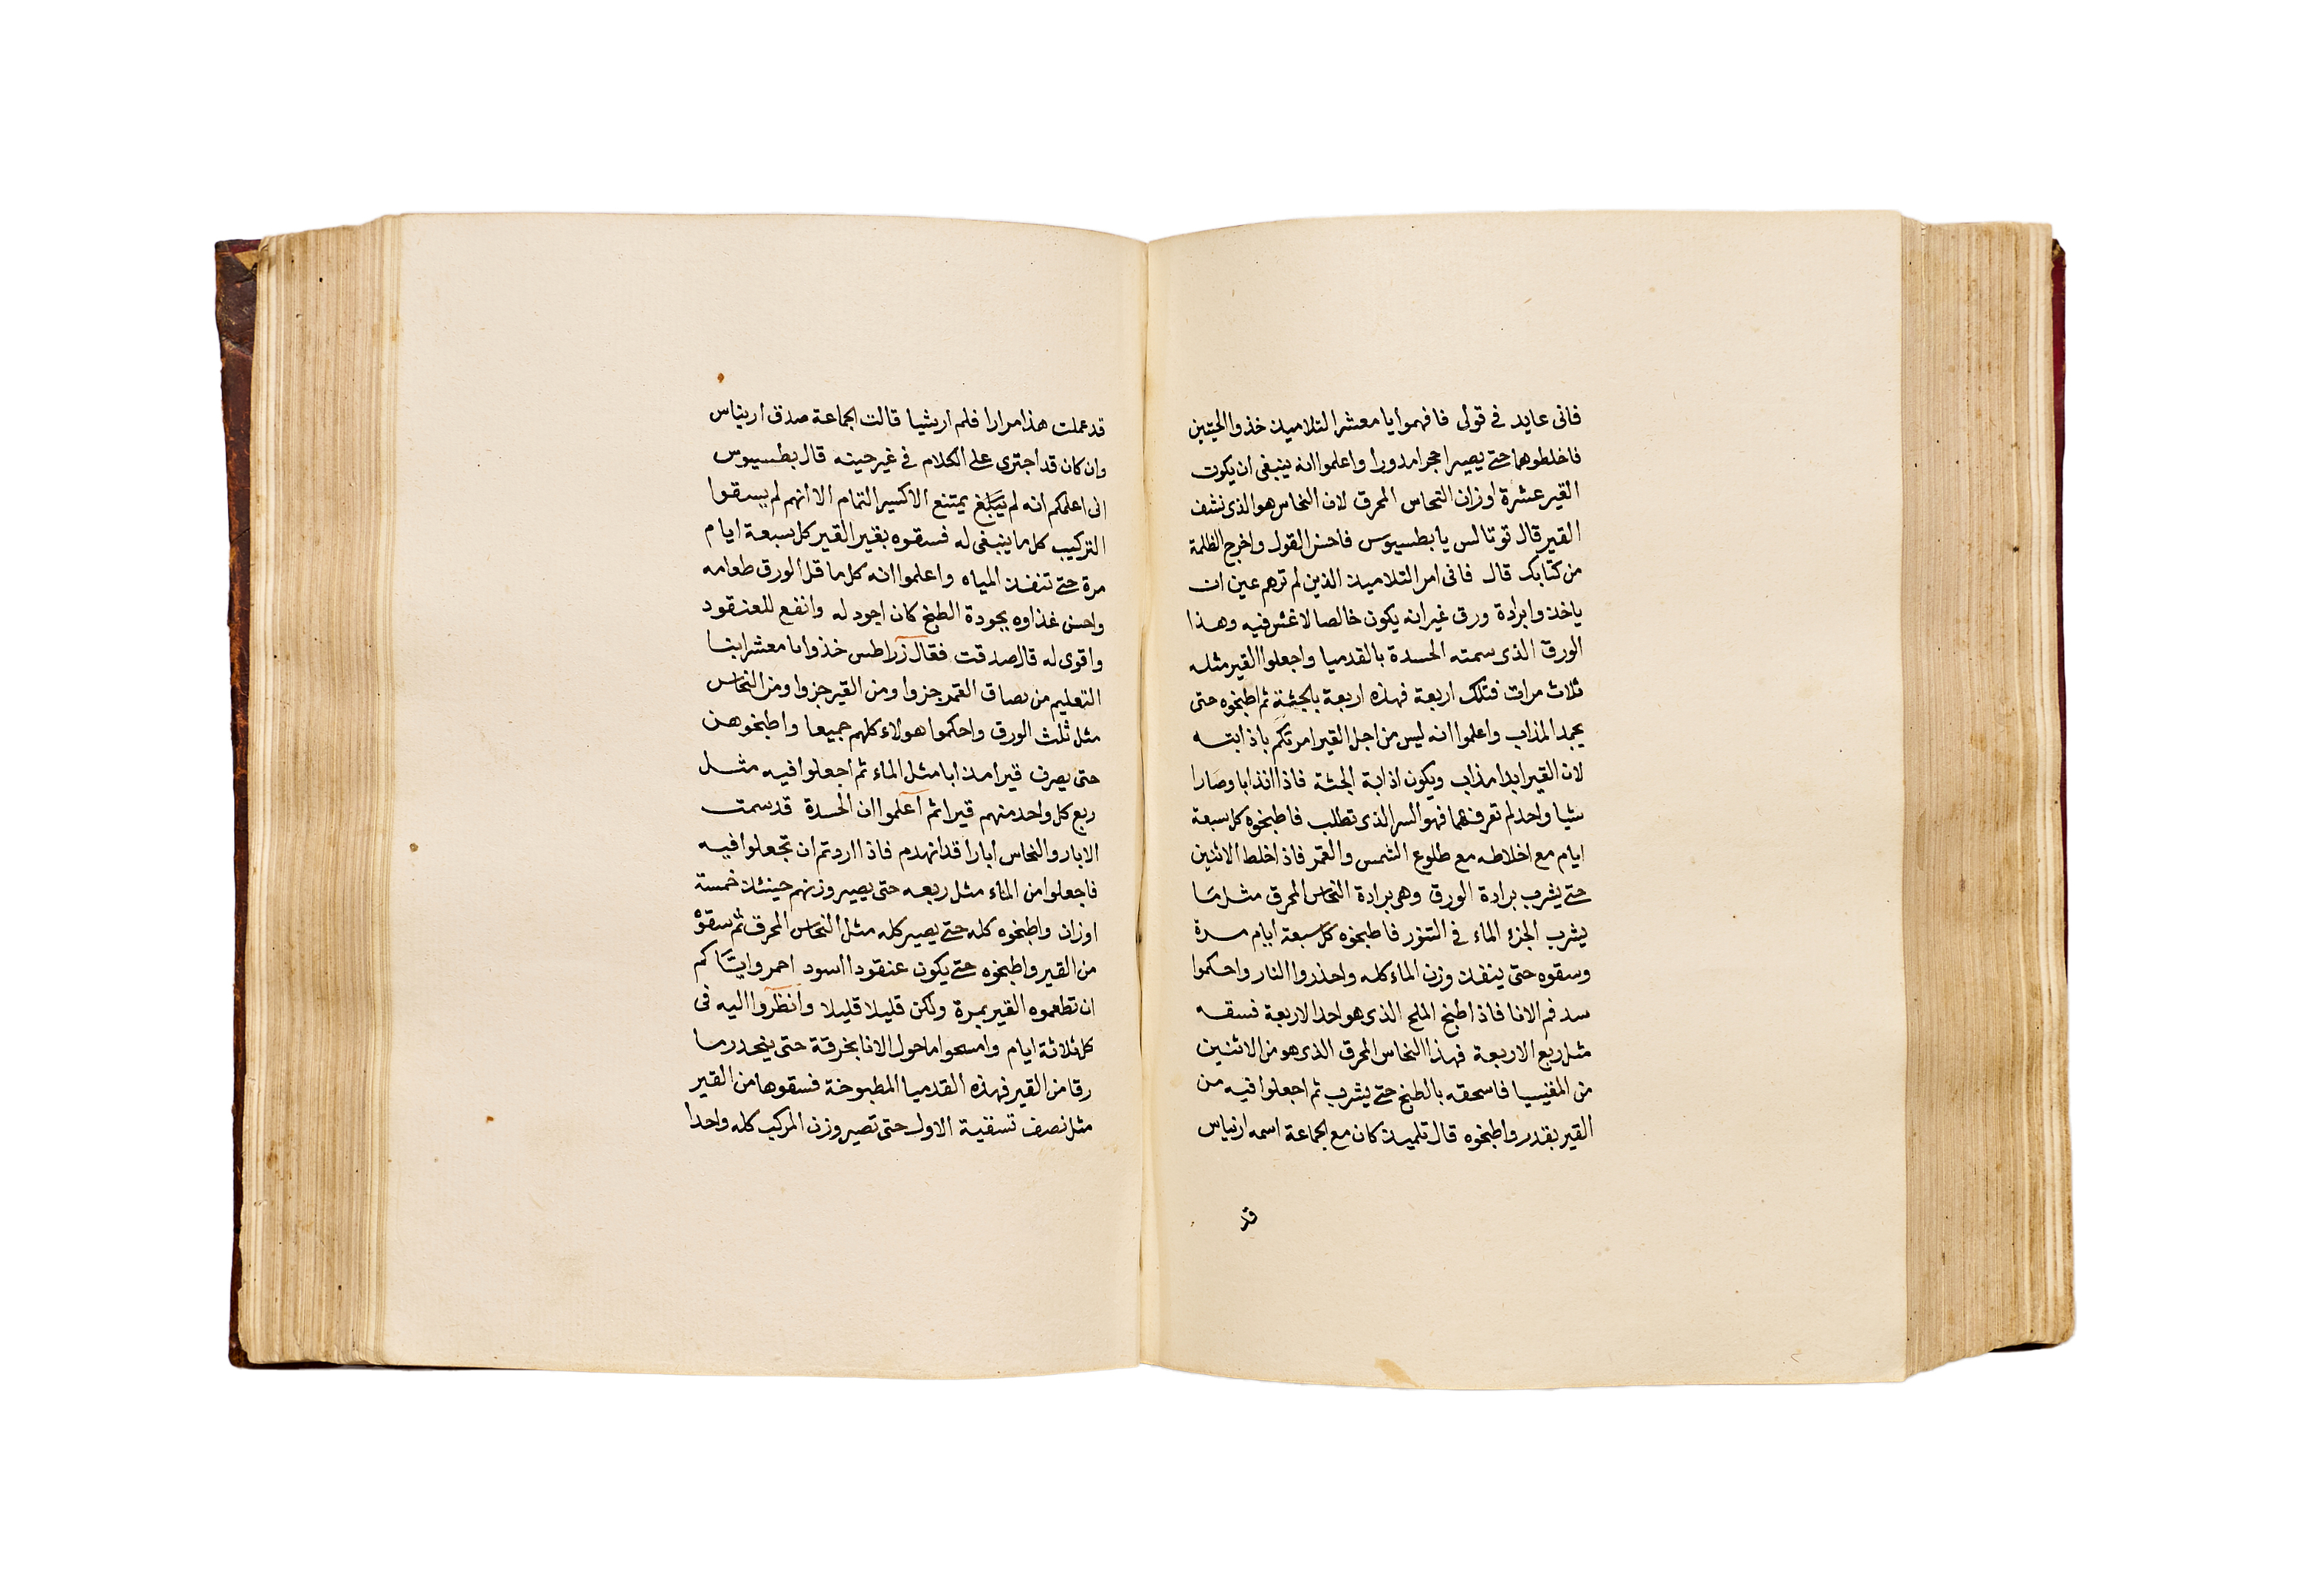 فانى عايد فى قولى فافهموا يا معشر التلاميذ خذوا الحيتين
فاخلطوهما حتى يصيرا حجرا مدورا واعلموا انه ينبغى ان يكون
القير عشرة اوزان النحاس المحرق لان النحاس هو الذى نشف
القير قال توتالس يا بطسيوس فاحسن القول واخرج الظلمة
من كتابك قال فانى امر التلاميذ الذين لم ترهم عين ان
ياخذوا برادة ورق غير انه يكون خالصا لا غش فيه وهذا
الورق الذى سمته الحسدة بالقدميا واجعلوا القير مثله
ثلاث مرات فتلك اربعة فهذه اربعة بالجثة ثم اطبخوه حتى
يجمد المذاب واعلموا انه ليس من اجل القير امرتكم باذابته
لان القير ابدا مذاب ويكون اذابة الجثة فاذا انذابا وصارا
شيا واحد لم تعرفهما فهو السر الذى تطلب فاطبخوه كل سبعة
ايام مع اخلاطه مع طلوع الشمس والقمر فاذ اخلط الاثنين
حتى يشرب برادة الورق وهى برادة النحاس المحرق مثل ما
يشرب الجزء الماء فى التنور فاطبخوه كل سبعة ايام مرة
وسقوه حتى ينفذ وزن الماء كله واحذروا النار واحكموا
سد فم الانا فاذ اطبخ الملح الذى هو احد الاربعة فسقه
مثل ربع الاربعة فهذا النحاس المحرق الذى هو من الاثنين
من المغنيسيا فاسحقه بالطبخ حتى يشرب ثم اجعلوا فيه من
القير بقدر واطبخوه قال تلميذ كان مع الجماعة اسمه ارنياس
قد
قد عملت هذا مرارا فلم ار شيا قالت الجماعة صدق ارنياس
وان كان قد اجترى على الكلام فى غير حينه قال بطسيوس
انى اعلمكم انه لم يمتنع الاكسير التمام الا انهم لم يسقوا
التركيب كل ما ينبغى له فسقوه بقير القير كل سبعة ايام
مرة حتى تنفذ المياه واعلموا انه كل ما قل الورق طعامه
واحسن غذاوه بجودة الطبخ كان اجود له وانفع للعنقود
واقوى له قال صدقت فقال زراطس خذوا يا معشر ابنا
التعليم من بصاق القمر جزوا ومن القير جزوا ومن النحاس
مثل ثلث الورق واحكموا هولاء كلهم جميعا واطبخوهن
حتى يصرف قيرا مذابا مثل الماء ثم اجعلوا فيه مثل
ربع كل واحد منهم قيرا ثم اعلموا ان الحسدة قد سمت
الابار والنحاس ابارا قد انهدم فاذا اردتم ان تجعلوا فيه
فاجعلوا من الماء مثل ربعه حتى يصير وزنهم حينئذ خمسة
اوزان واطبخوه كله حتى يصير كله مثل النحاس المحرق ثم سقوه
من القير واطبخوه حتى يكون عنقودا اسود احمر واياكم
ان تطعموه القير بمرة ولكن قليلا قليلا وانظروا اليه فى
كل ثلاثة ايام وامسحوا ما حول الانا بخرقة حتى ينحدر ما
رقا من القير فهذه القدميا المطبوخة فسقوها من القير
مثل نصف تسقية الاول حتى تصير وزن المركب كله واحدا